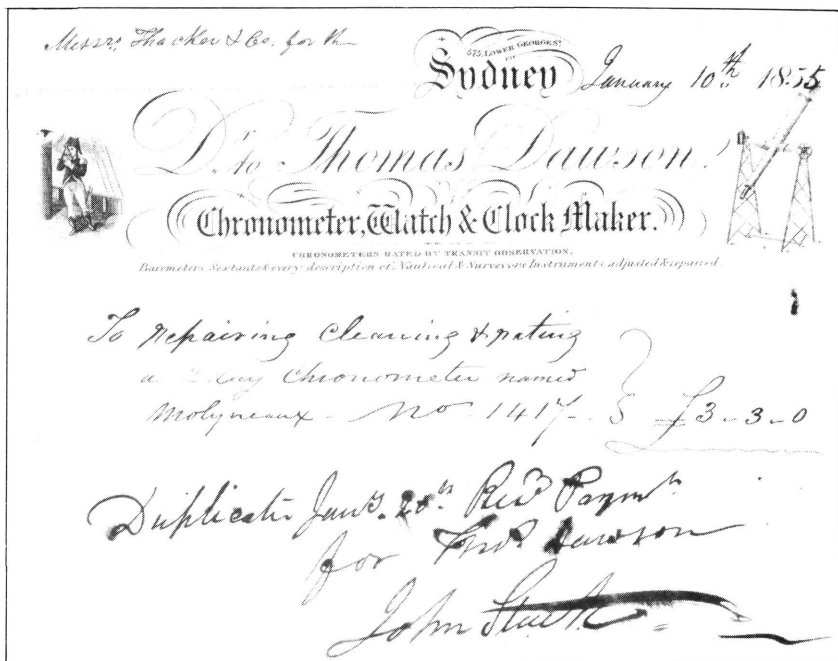 Messrs. Thacker & Co. for the
575, LOWER GEORGE ST.
Sydney January 10th 1855
Dr. to Thomas Dawson.
Chronometer, Watch & Clock Maker.
CHRONOMETERS RATED BY TRANSIT OBSERVATION.
Barometers, Sextants & every description of Nautical & Surveyors Instruments adjusted & repaired.
To repairing cleaning & rating
a 2 day chronometer named
Molyneaux - No 1417 - £3-3-0
Duplicate Jany. 20th Recd Paymt
for Thos Dawson
John